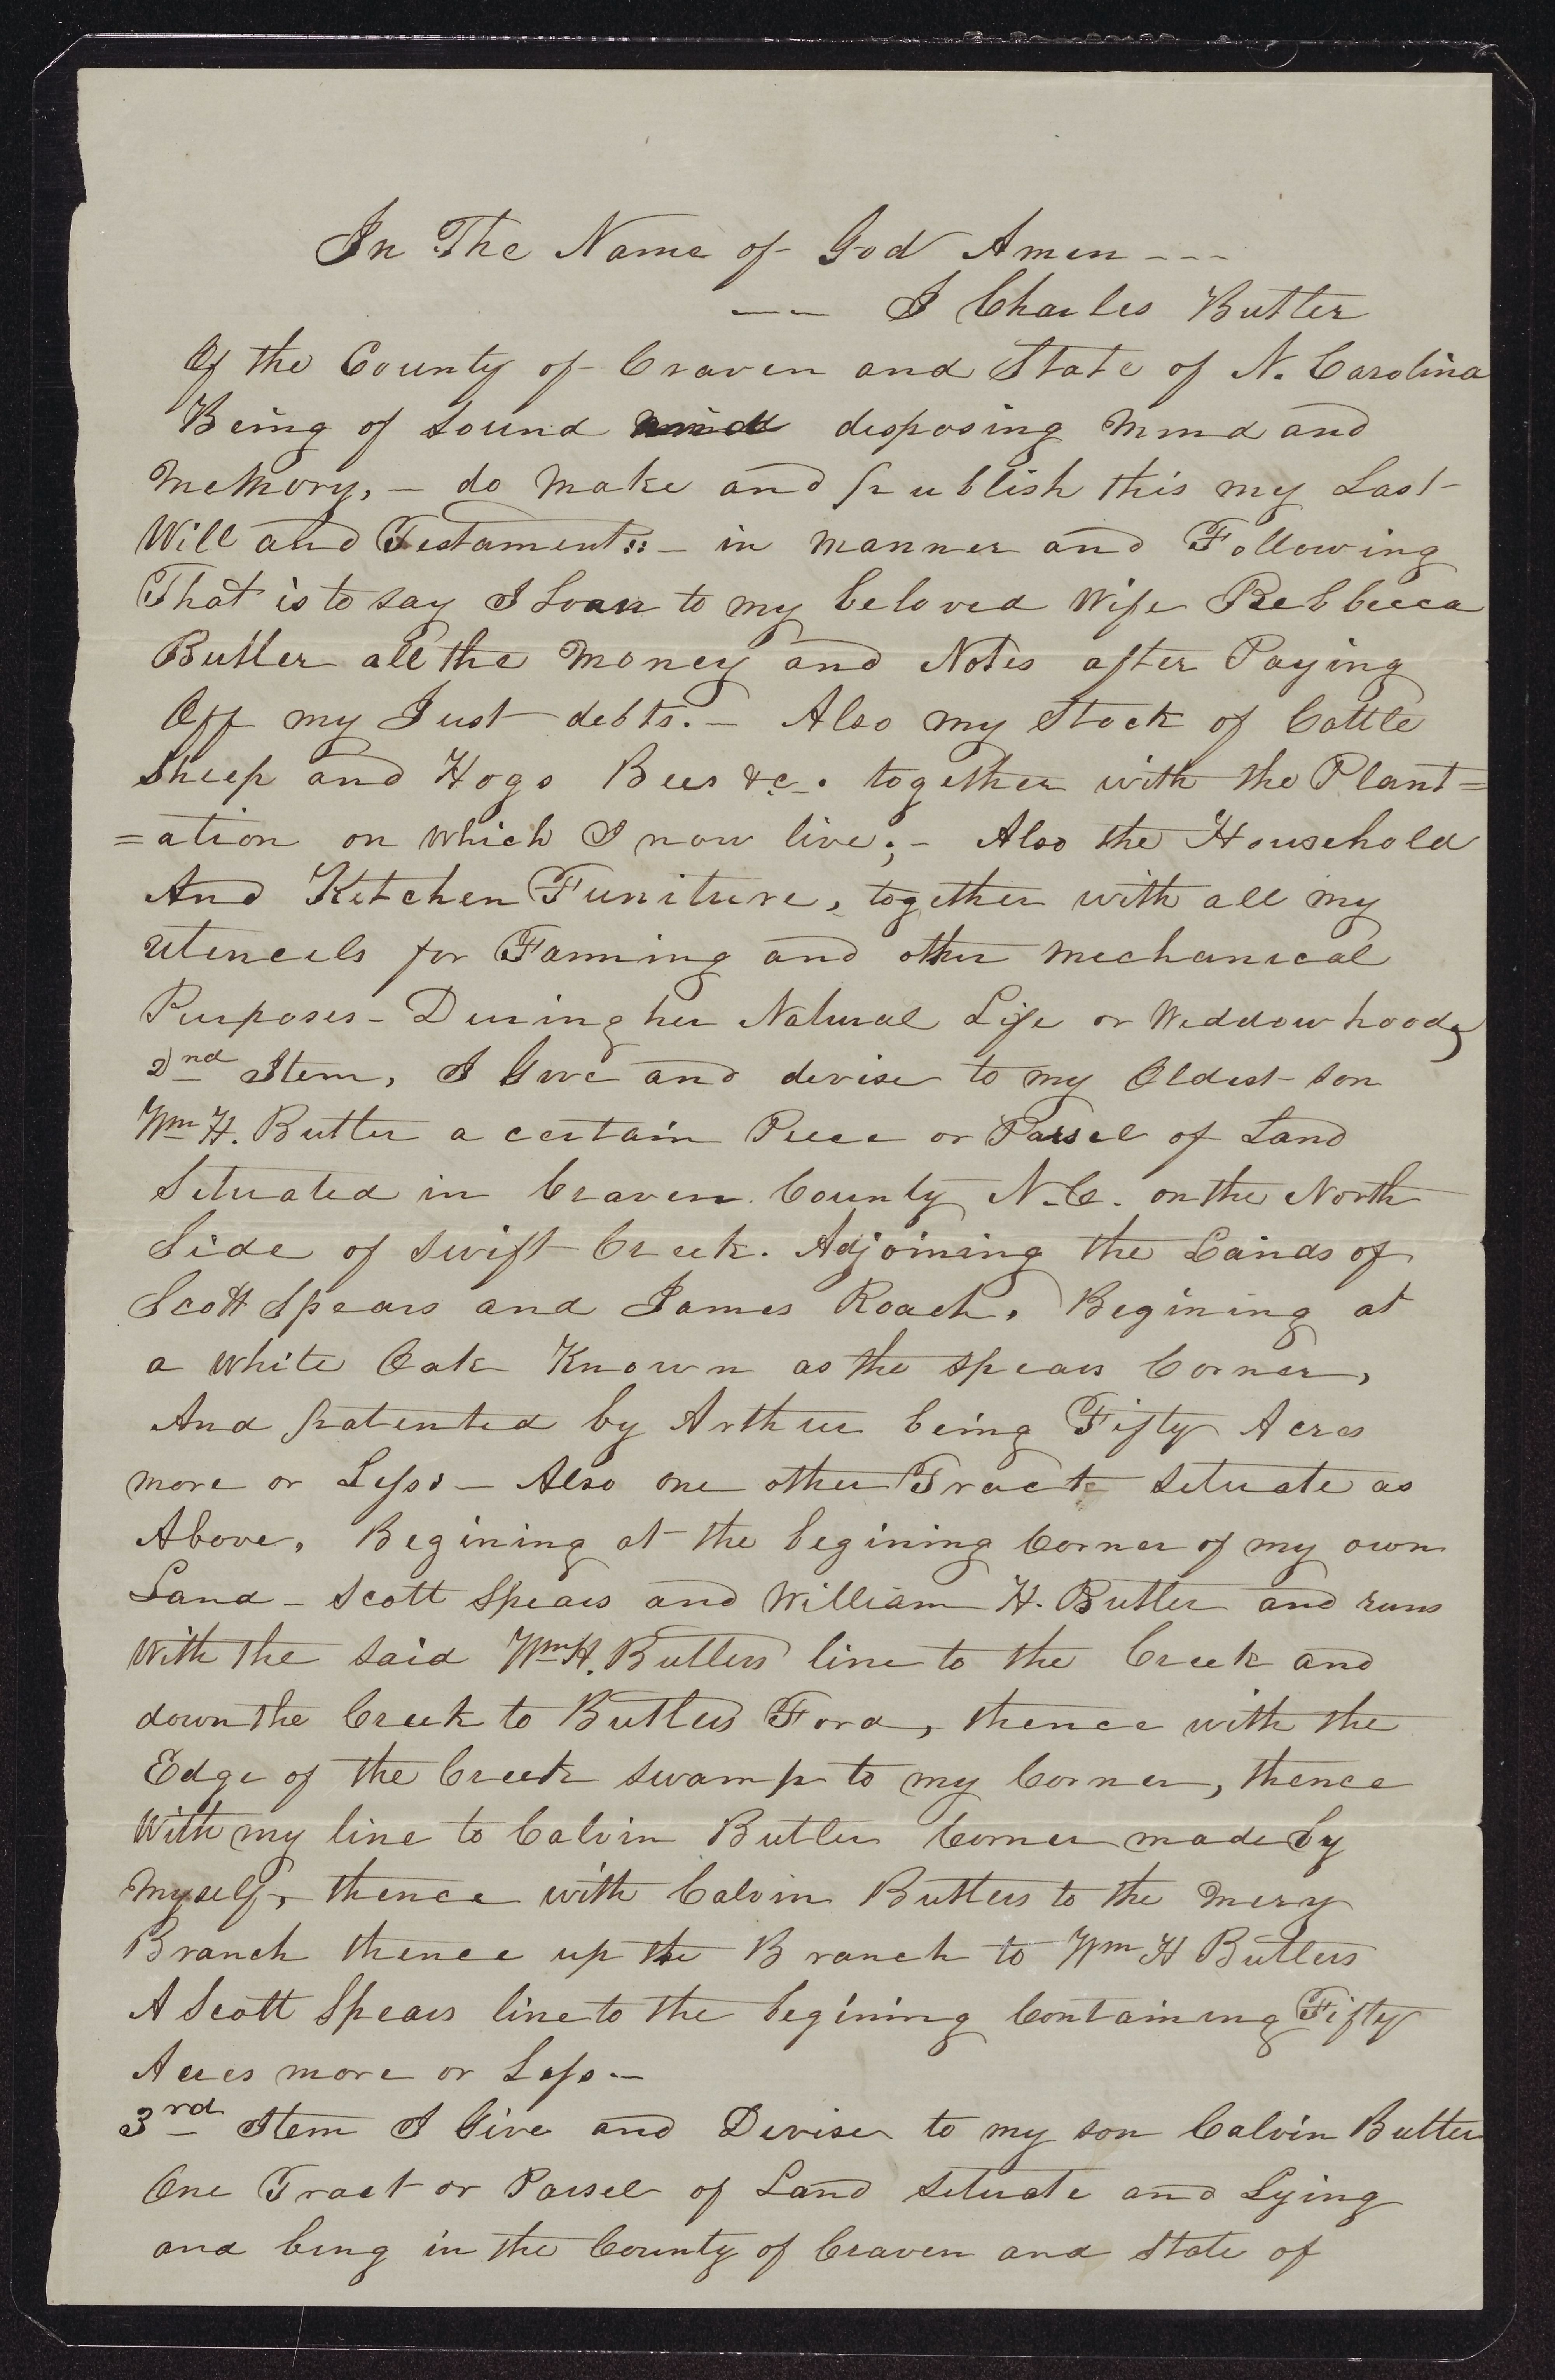 In The Name of God Amen - - -
— — I Charles Butler
Of the County of Craven and State of N. Carolina
Being of sound disposing Mind and
Memory, — do Make and publish this my Last
Will and Testament :: — in Manner and Following
That is to say I Loan to my beloved Wife Rebbecca
Butler all the Money and Notes after Paying
Off my Just debts. — Also my Stock of Cattle
Sheep and Hogs Bees &c. together with the Plant=
=ation on which I now live; — Also the Household
And Kitchen Funiture, together with all my
Utencels for Farming and other Mechanical
Purposes — During her Natural Life or Weddowhood
2nd Item, I Give and devise to my Oldest son
Wm H. Butler a certain Piece or Parsel of Land
Situated in Craven County N.C. on the North
Side of Swift Creek. Adjoining the Lands of
Scott Spears and James Roach. Begining at
a White Oak Known as the Spears Corner,
And patented by Arthur being Fifty Acres
more or Less — Also one other Tract Setuate as
Above, Begining at the begining Corner of my own
Land — Scott Spears and William H. Butler and runs
With the said Wm H. Butlers line to the Creek and
down the Creek to Butlers Ford, thence with the
Edge of the Creek swamp to my Corner, thence
With my line to Calvin Butler Corner made by
Myself, thence with Calvin Butlers to the Mery
Branch thence up the Branch to Wm H Butlers
A Scott Spears line to the begining Containing Fifty
Acres more or Less —
3rd Item I Give and Devise to my son Calvin Butler
One Tract or Parsel of Land Setuate and Lying
and being in the County of Craven and State of